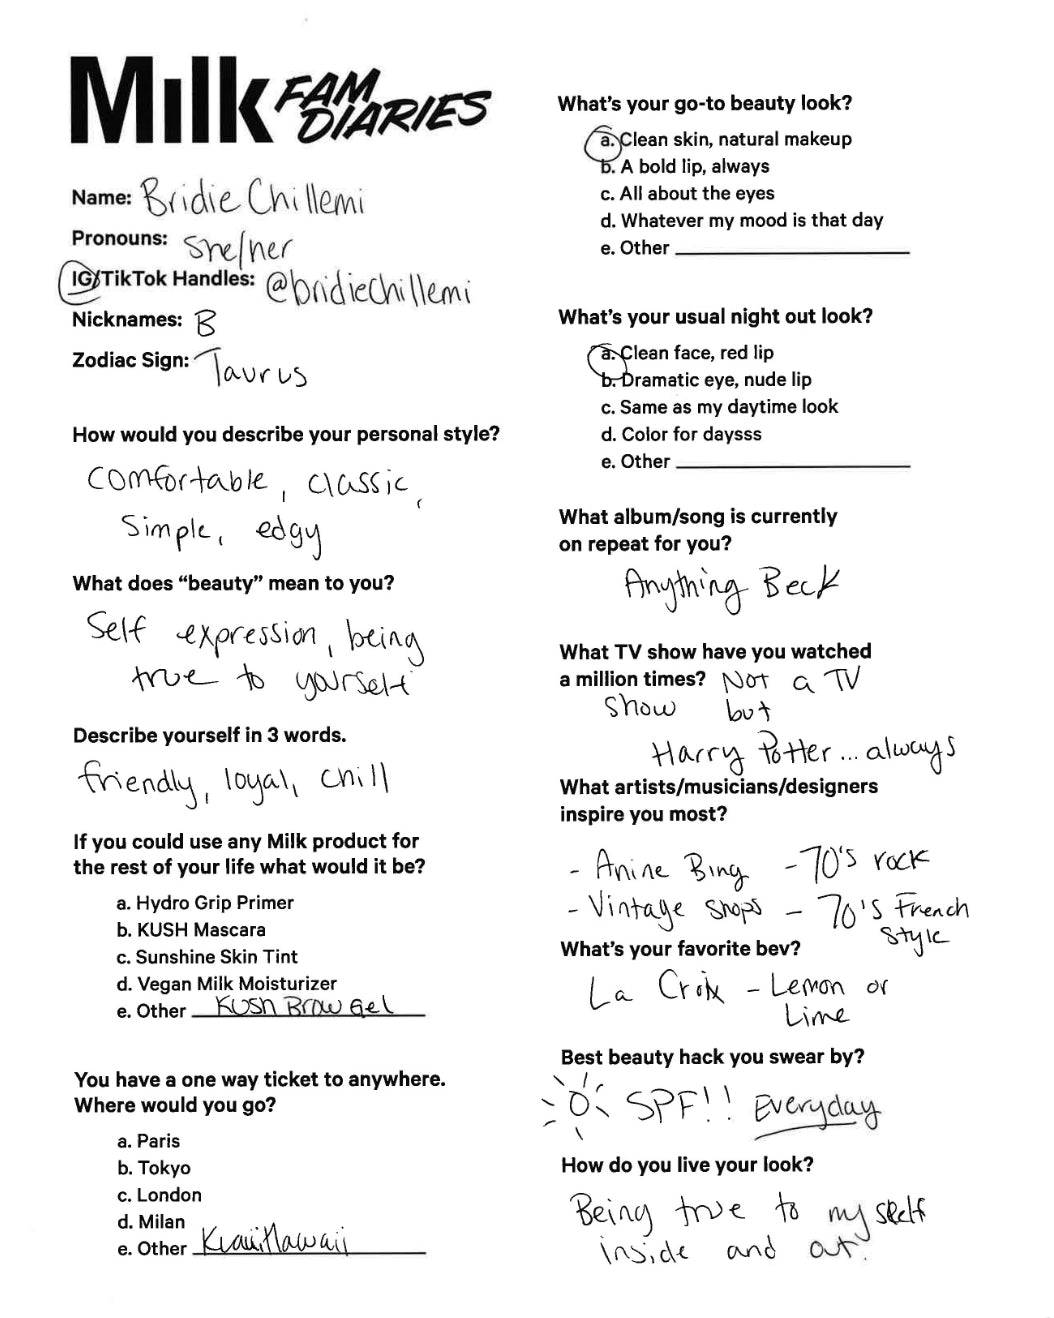 Milk FAM DIARIES
Name: Bridie Chillemi
Pronouns: she/her
IG/TikTok Handles: @bridiechillemi
Nicknames: B
Zodiac Sign: Taurus
How would you describe your personal style?
comfortable, classic,
simple, edgy
What does “beauty” mean to you?
Self expression, being
true to yourself
Describe yourself in 3 words.
friendly, loyal, chill
If you could use any Milk product for
the rest of your life what would it be?
a. Hydro Grip Primer
b. KUSH Mascara
c. Sunshine Skin Tint
d. Vegan Milk Moisturizer
e. Other KUSH Brow Gel
You have a one way ticket to anywhere.
Where would you go?
a. Paris
b. Tokyo
c. London
d. Milan
e. Other Hawaii
What’s your go-to beauty look?
a. Clean skin, natural makeup
b. A bold lip, always
c. All about the eyes
d. Whatever my mood is that day
e. Other
What’s your usual night out look?
a. Clean face, red lip
b. Dramatic eye, nude lip
c. Same as my daytime look
d. Color for daysss
e. Other
What album/song is currently
on repeat for you?
Anything Beck
What TV show have you watched
a million times? Not a TV
show but
Harry Potter... always
What artists/musicians/designers
inspire you most?
- Anine Bing - 70's rock
- Vintage shops - 70's French
style
What’s your favorite bev?
La Croix - Lemon or
Lime
Best beauty hack you swear by?
SPF!! Everyday
How do you live your look?
Being true to myself
inside and out.